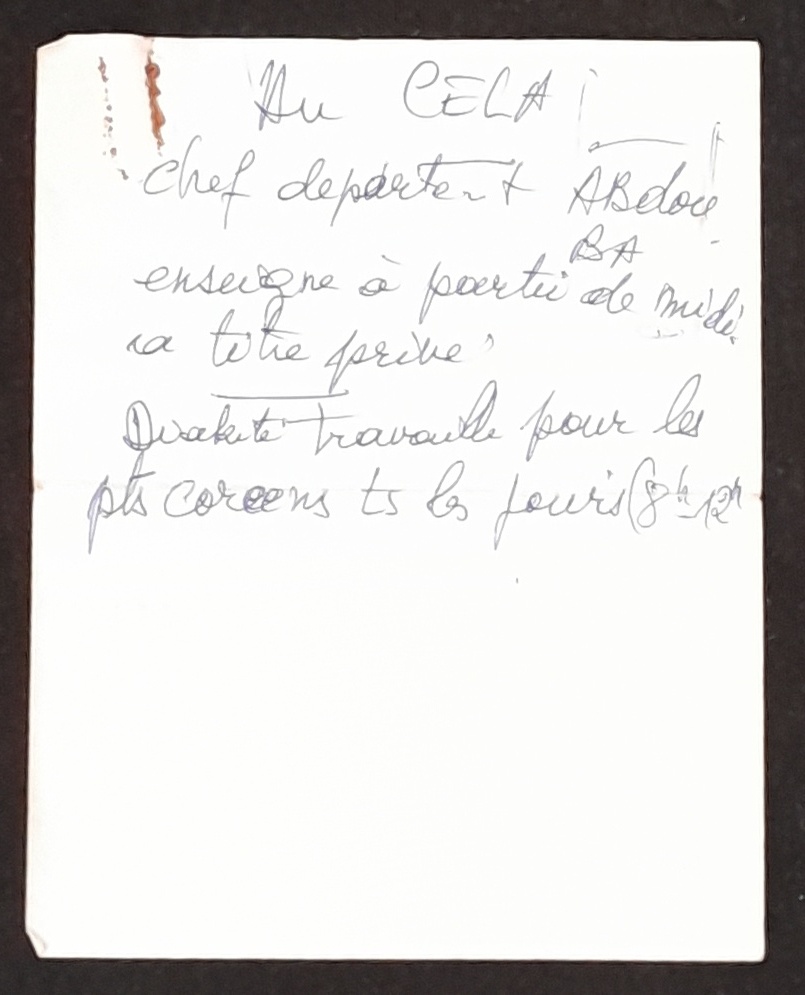 Au CELA
chef départe-t ABdou
BA
enseigne à partir de midi
a titre privé
Diakité travaille pour les
pts coreens ts les jours (8h-12h